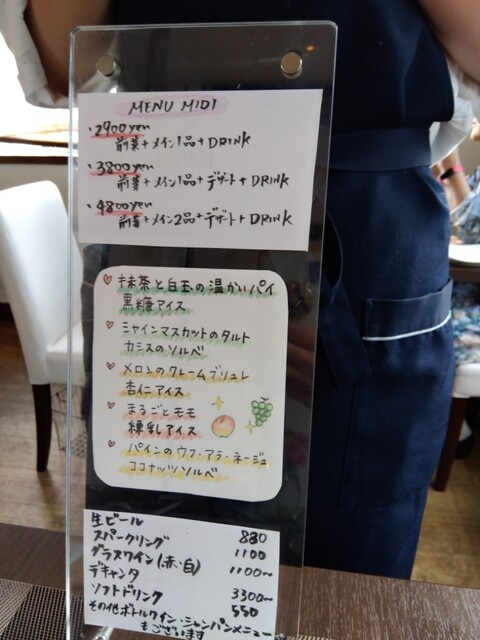 MENU MIDI
・2900yen
前菜+メイン1品+DRINK
・3800yen
前菜+メイン1品+デザート+DRINK
・4800yen
前菜+メイン2品+デザート+DRINK
♡抹茶と白玉の温かいパイ
黒糖アイス
♡シャインマスカットのタルト
カシスのソルベ
♡メロンのクレームブリュレ
杏仁アイス
♡まるごとモモ
練乳アイス
♡パインのウフ・アラ・ネージュ
ココナッツソルベ
生ビール 880
スパークリング 1100
グラスワイン(赤・白) 1100~
デキャンタ 3300~
ソフトドリンク 550
その他ボトルワイン・シャンパンメニュー
もございます